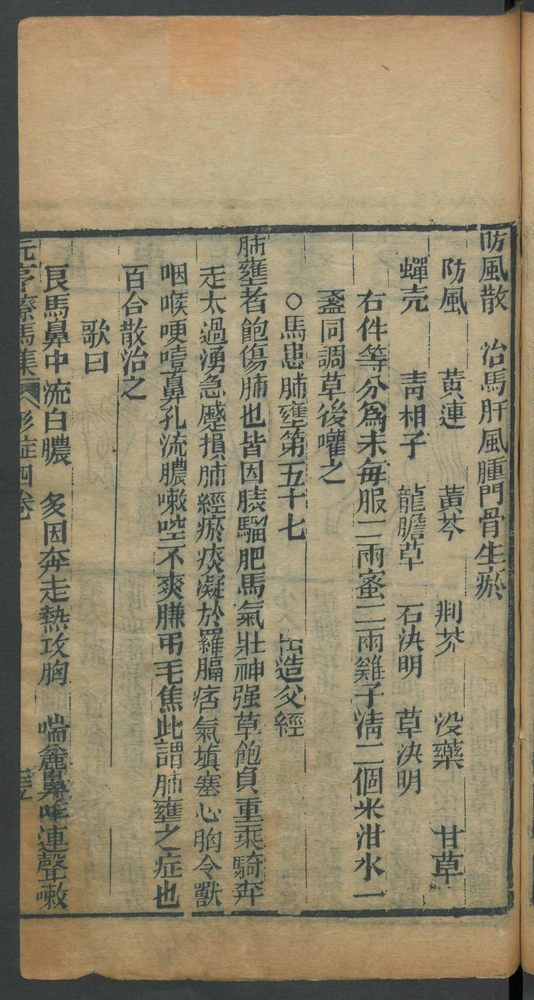 防風散　治馬肝風腫門骨生瘀
防風　黃連　黃芩　荆芥　沒藥　甘草
蟬壳　青相子　龍膽草　石決明　草決明
右件等分爲末毎服二兩蜜二兩雞子清二個米泔水一
盞同調草後嚾之
○馬患肺壅第五十七　造父經
肺壅者飽傷肺也皆因膘騮肥馬氣壯神强草飽負重乘騎奔
走太過湧急壓損肺經瘀痰凝於羅膈痞氣塡塞心胸令獸
咽喉哽噎鼻孔流膿嗽啌不爽膁弔毛焦此謂肺壅之症也
百合散治之
歌曰
良馬鼻中流白膿　多因奔走熱攻胸　喘麄鼻咋連聲嗽
元亨療馬集　形症四卷